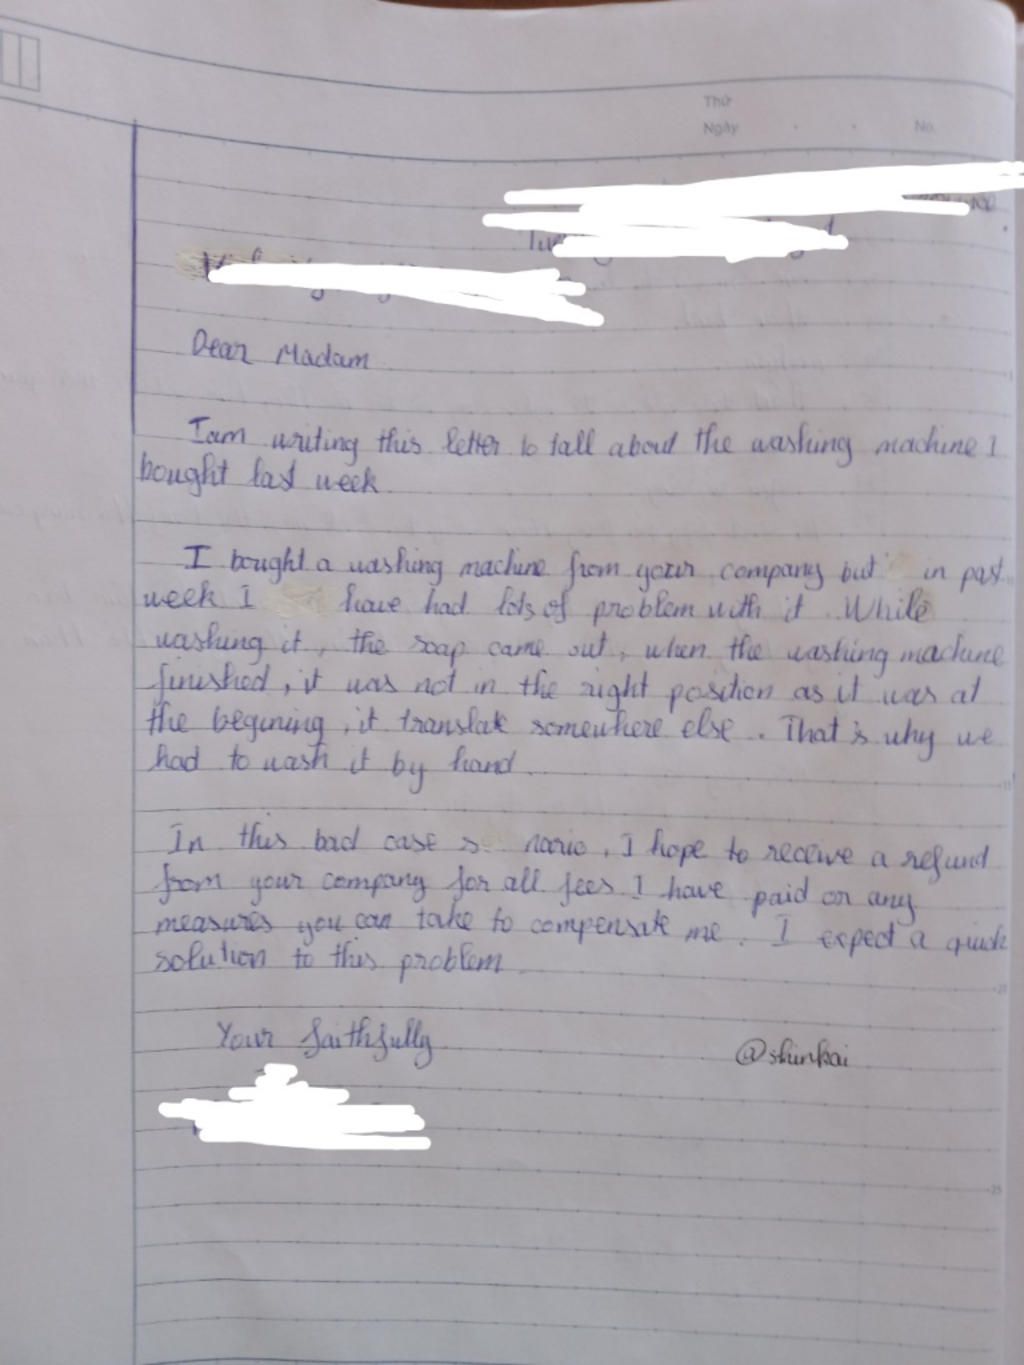 Thứ
Ngày
No.
Dear Madam
I am writing this letter to tall about the washing machine I
bought last week
I bought a washing machine from your company but in past
week I have had lots of problem with it. While
washing it, the soap came out, when the washing machine
finished, it was not in the right position as it was at
the begining, it translate somewhere else. That's why we
had to wash it by hand
In this bad case s nario, I hope to receive a refund
from your company for all fees I have paid or any
measures you can take to compensate me. I expect a quick
solution to this problem
Your faithfully
@shinkai